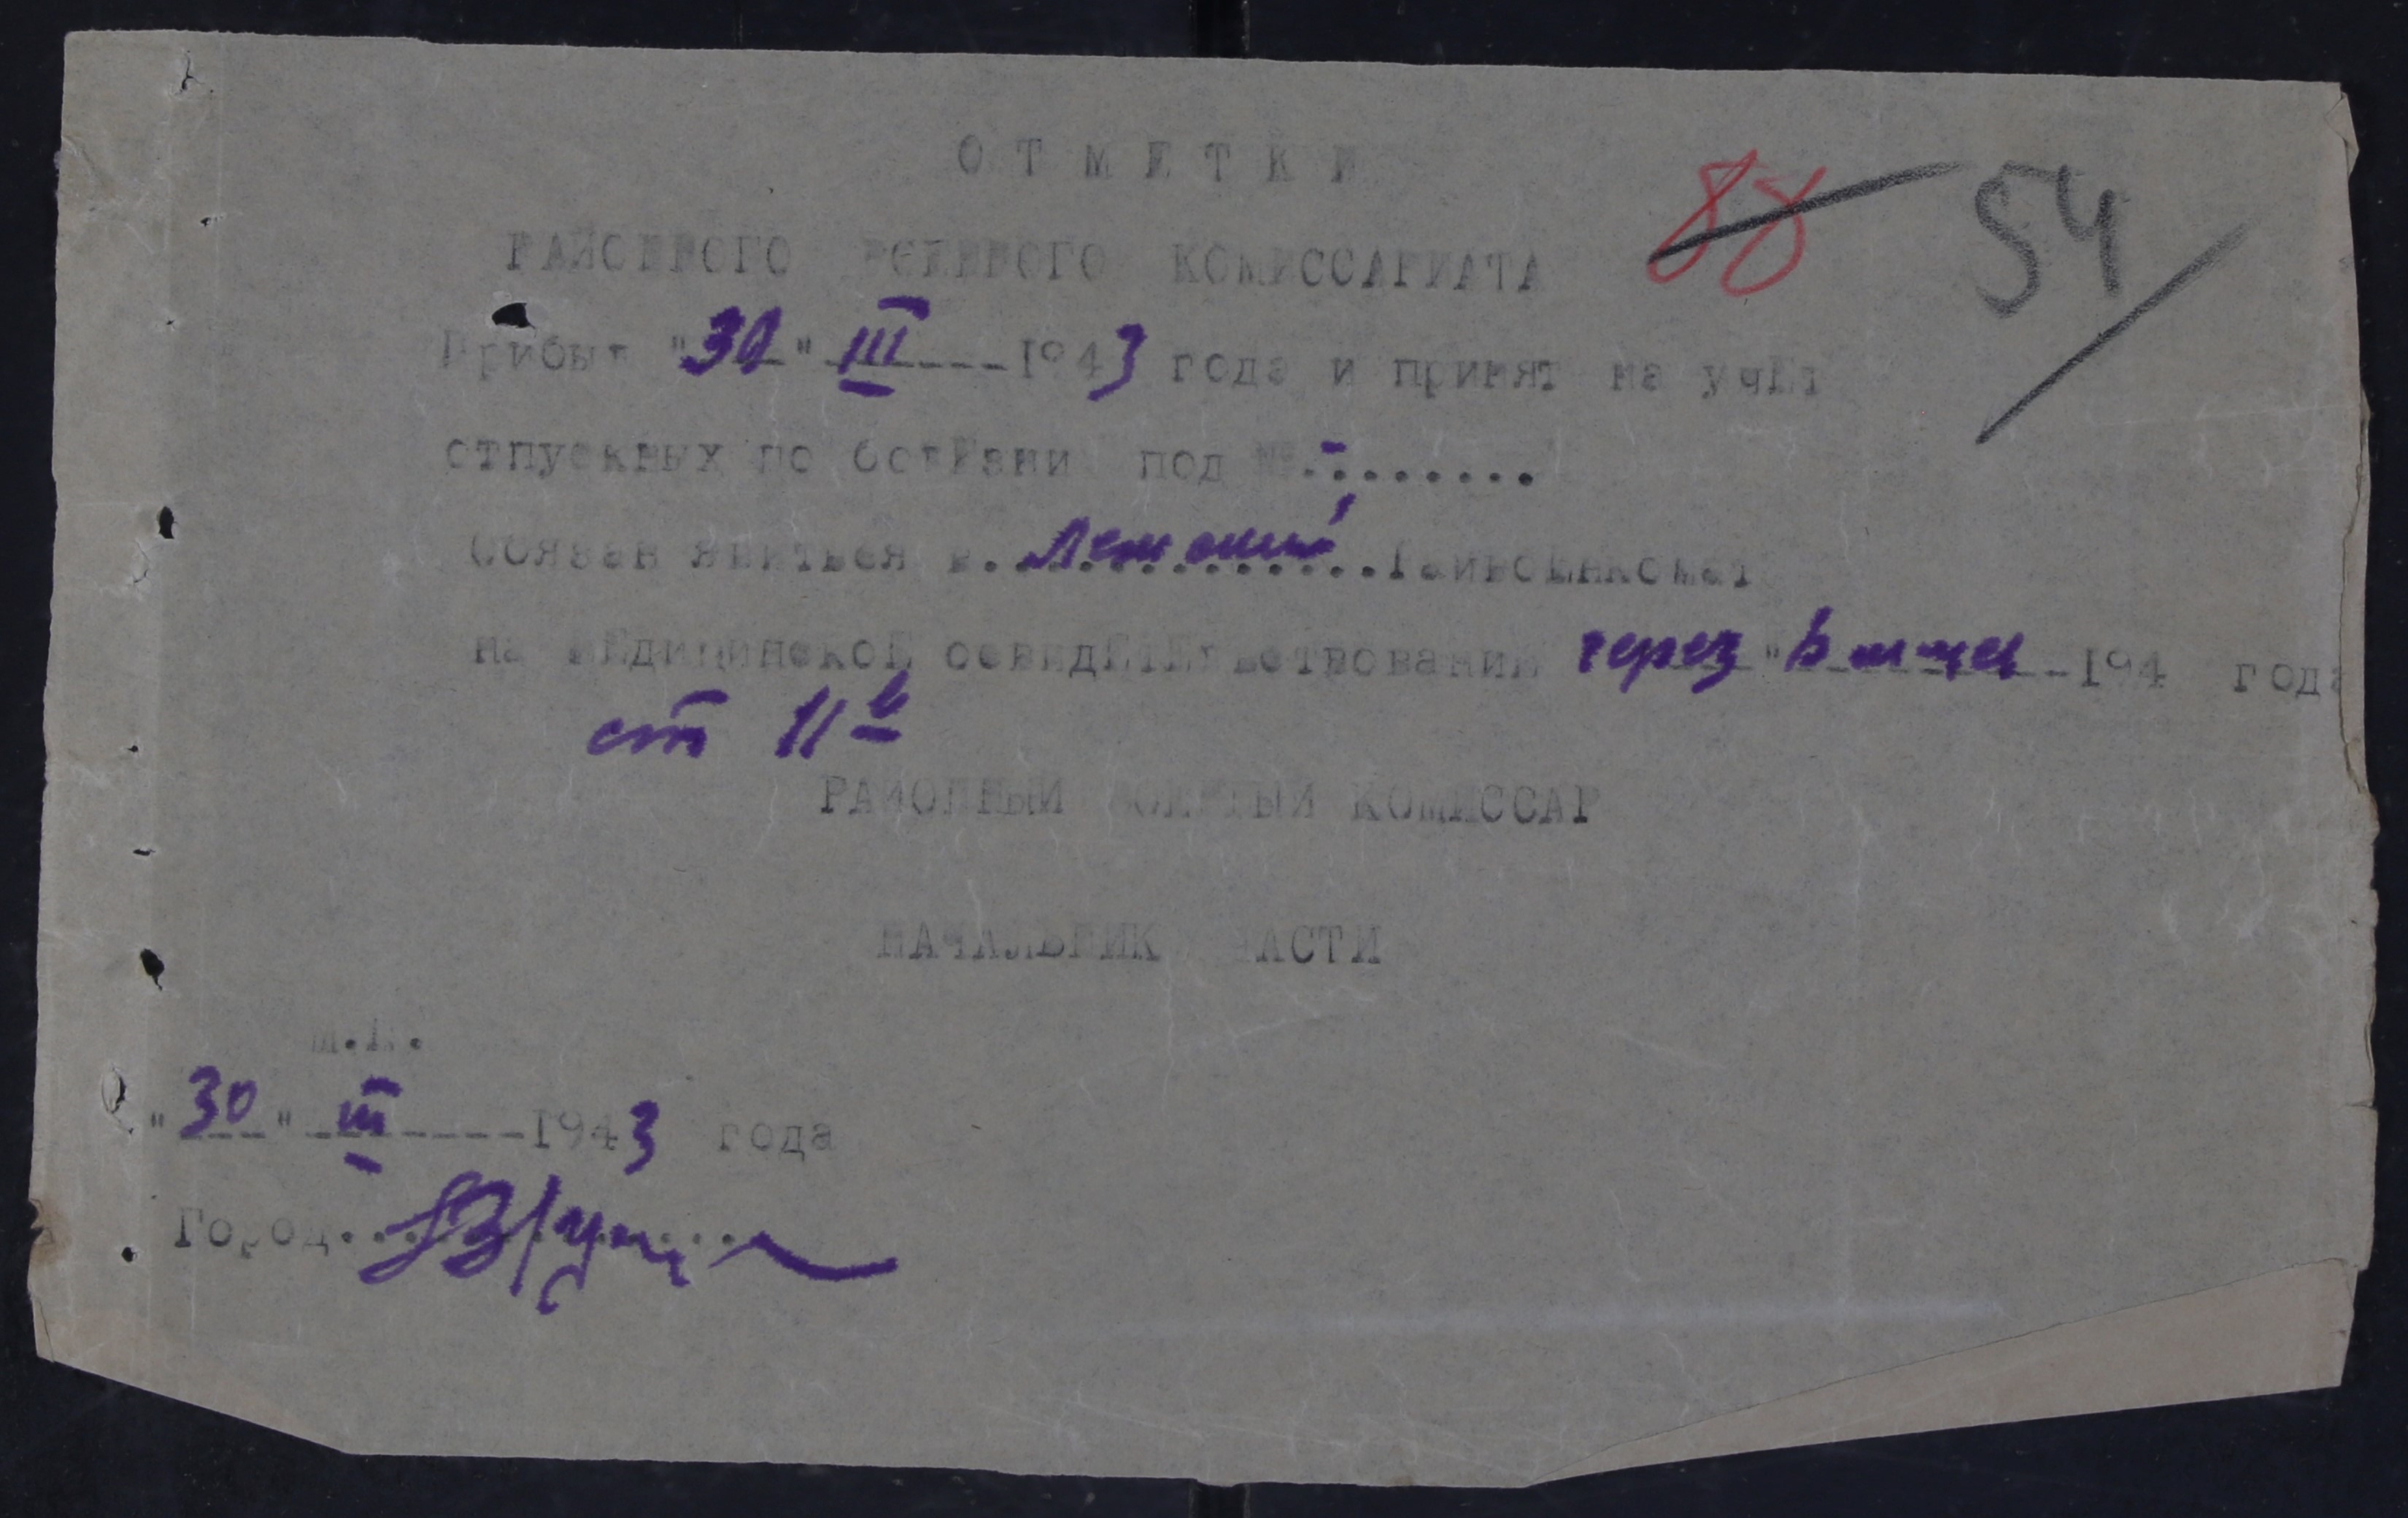 ОТМЕТКИ
РАЙОННОГО ВОЕННОГО КОМИССАРИАТА
88 54
Прибыл "30" III 1943 года и принят на учёт
отпускных по болезни под № -
Обязан явиться в Райвоенкомат
на медицинское освидетельствование через " 6 м-цев 194 года
ст 11 в
РАЙОННЫЙ ВОЕННЫЙ КОМИССАР
НАЧАЛЬНИК ЧАСТИ
м.п.
"30" III 1943 года
Город